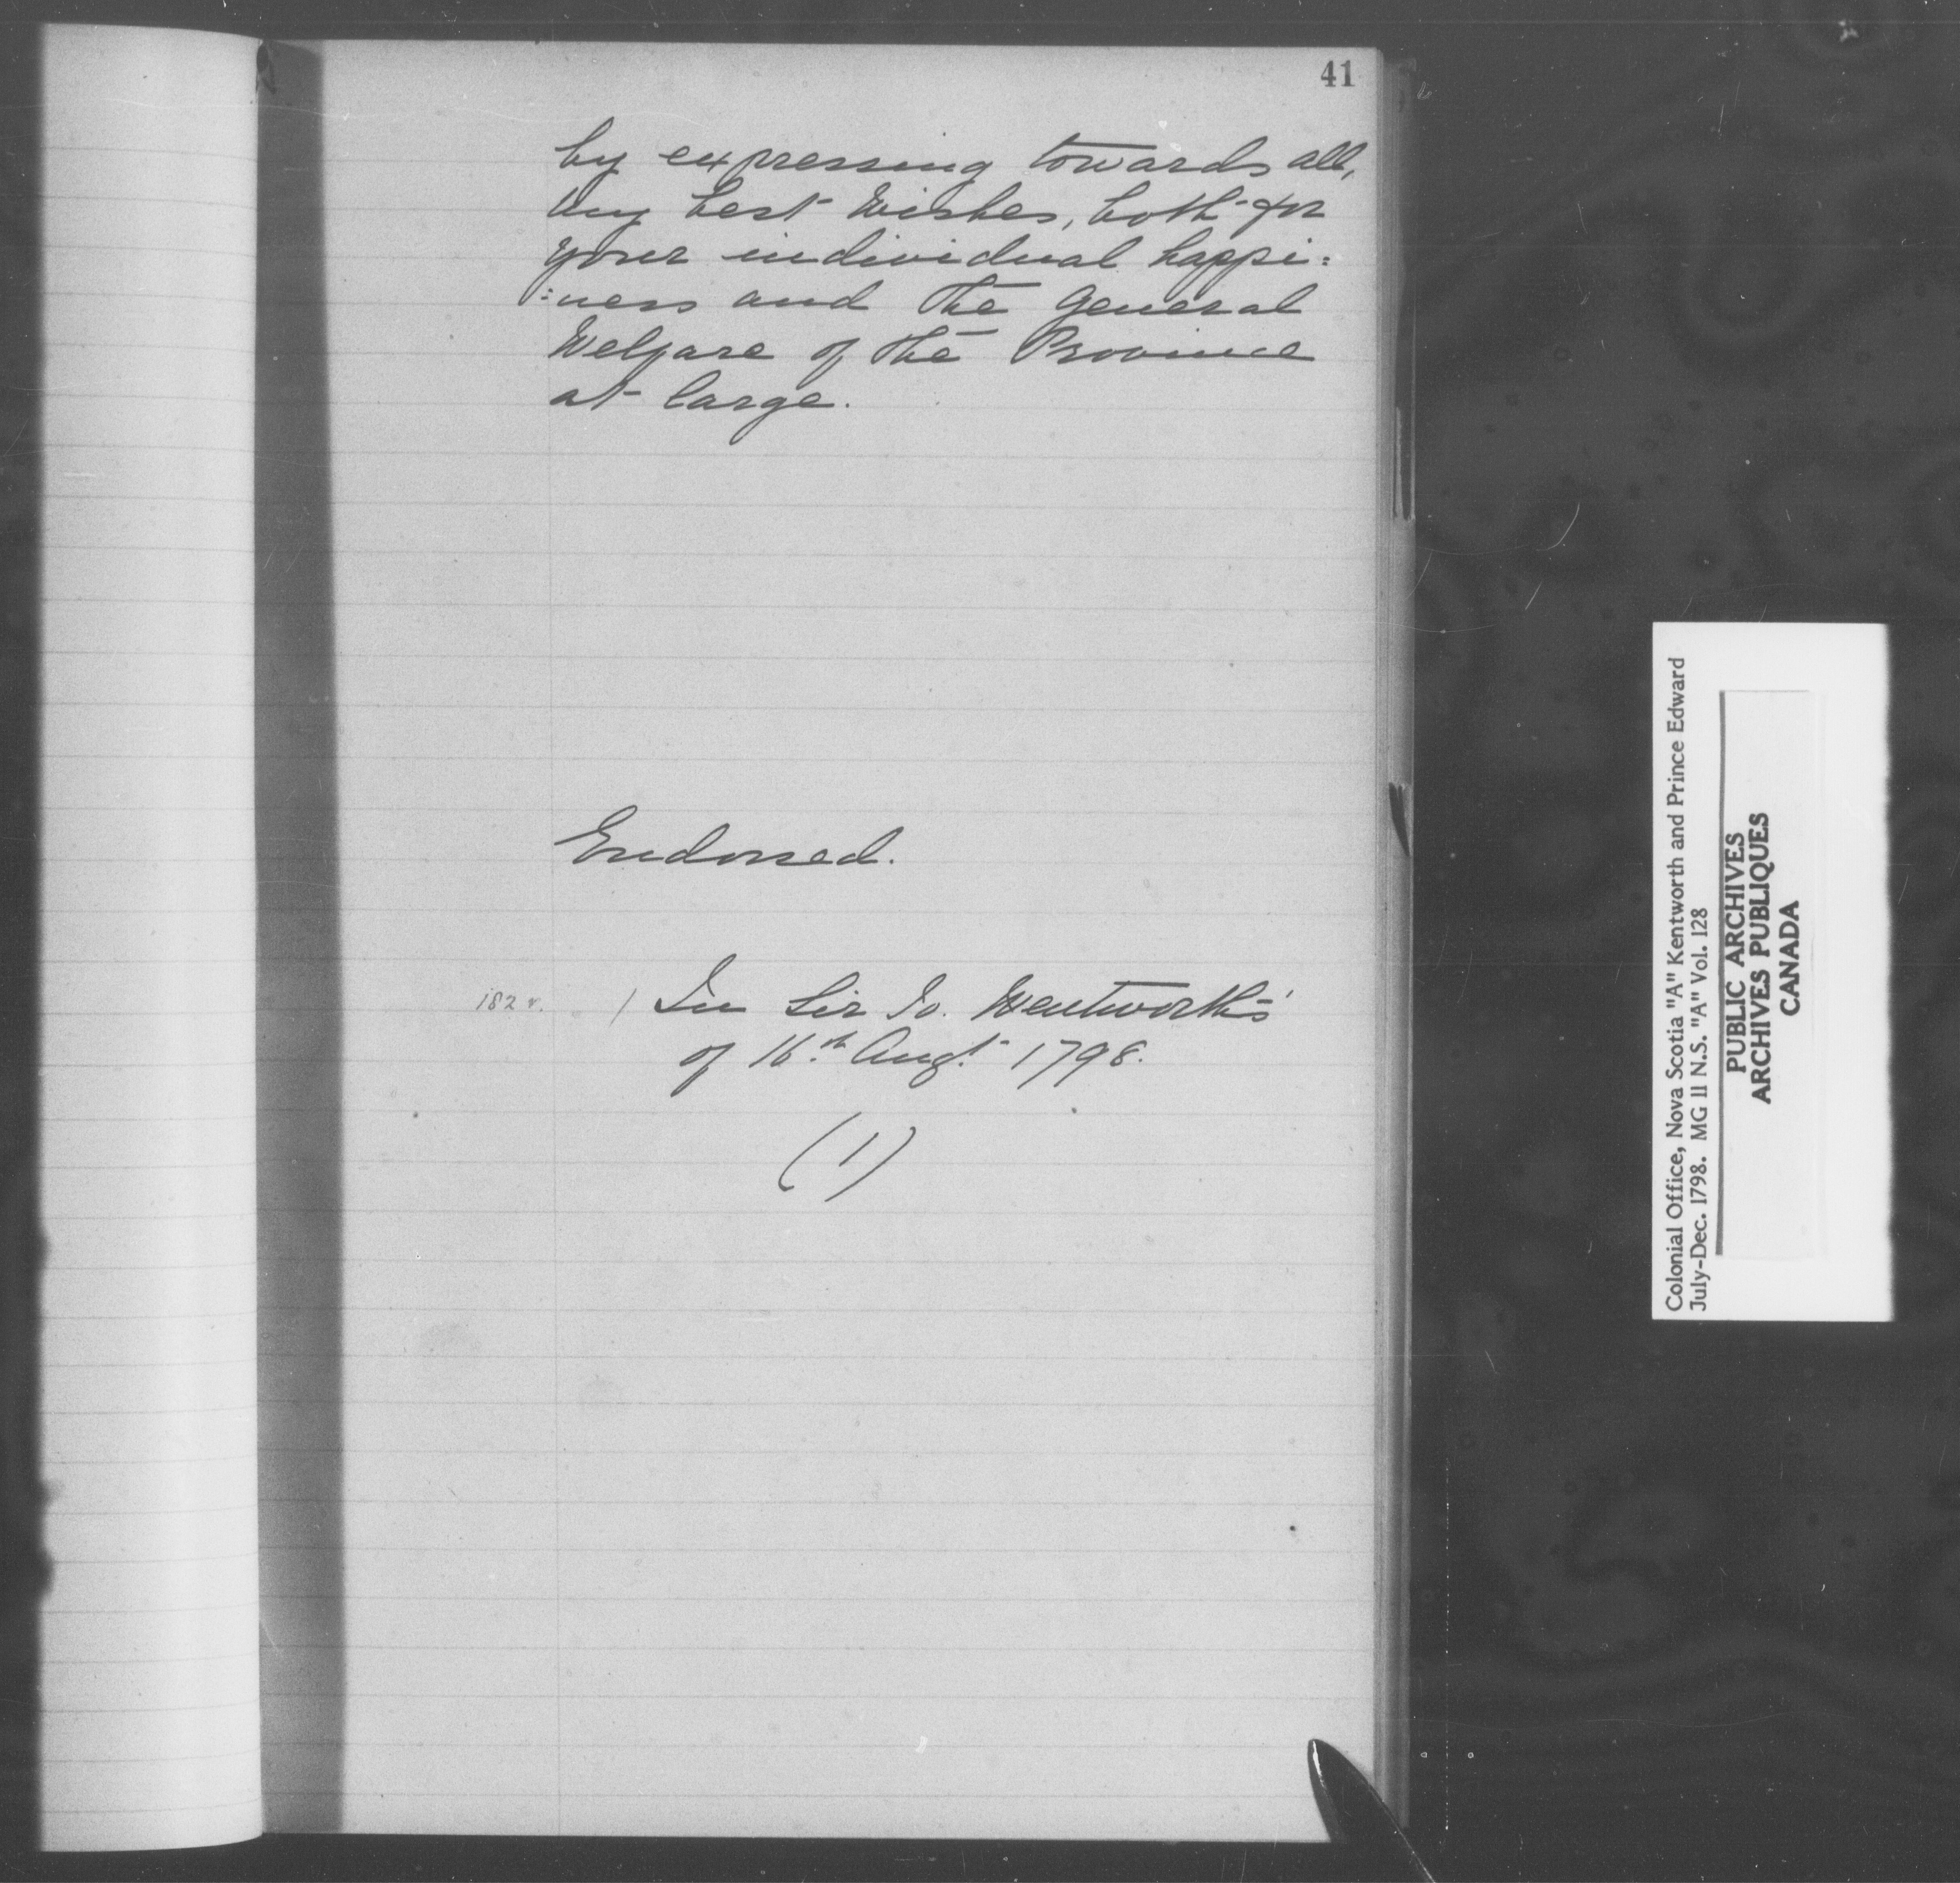 41
by expressing towards all,
my best Wishes, both for
your individual happi:
:ness and the General
Welfare of the Province
at large.
Endorsed.
182 v. / In Sir Jo. Wentworth's
of 16th Augt 1798.
(1)
Colonial Office, Nova Scotia "A" Kentworth and Prince Edward
July-Dec. 1798. MG 11 N.S. "A" Vol. 128
PUBLIC ARCHIVES
ARCHIVES PUBLIQUES
CANADA